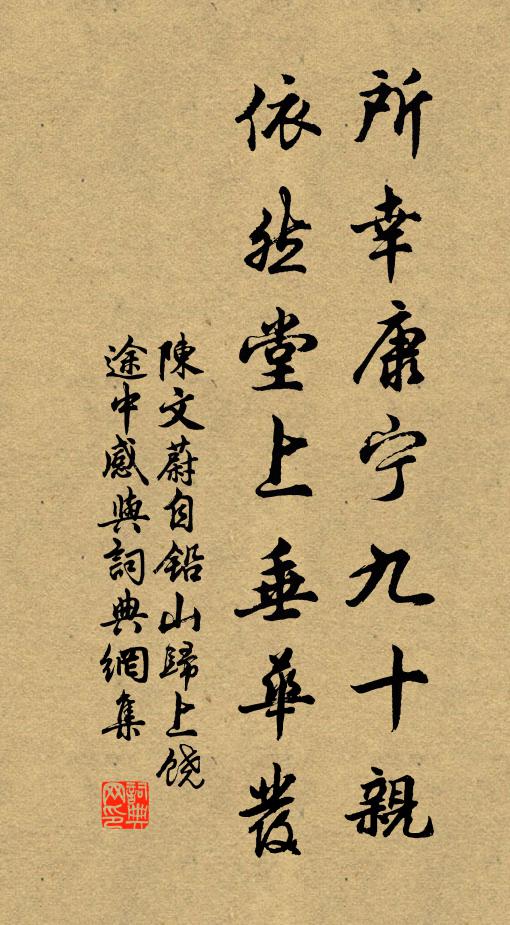 所幸康宁九十親
依然堂上垂華發
陳文蔚自鉛山歸上饒
途中感興詞典網集
詞典
网印